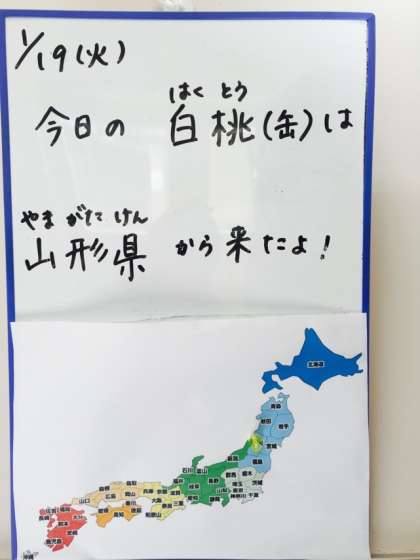 1/19(火)
はく とう
今日の 白桃(缶)は
やま がた けん
山形県 から来たよ!
北海道
青森
秋田 岩手
宮城
新潟 福島
石川 富山
群馬 栃木
茨城
埼玉
東京
神奈川 千葉
福井 岐阜 長野
愛知 静岡
島根 鳥取
広島 岡山
兵庫 京都 滋賀
大阪 奈良 三重
和歌山
山口
愛媛 香川
高知 徳島
佐賀 福岡
長崎 大分
熊本 宮崎
鹿児島
沖縄